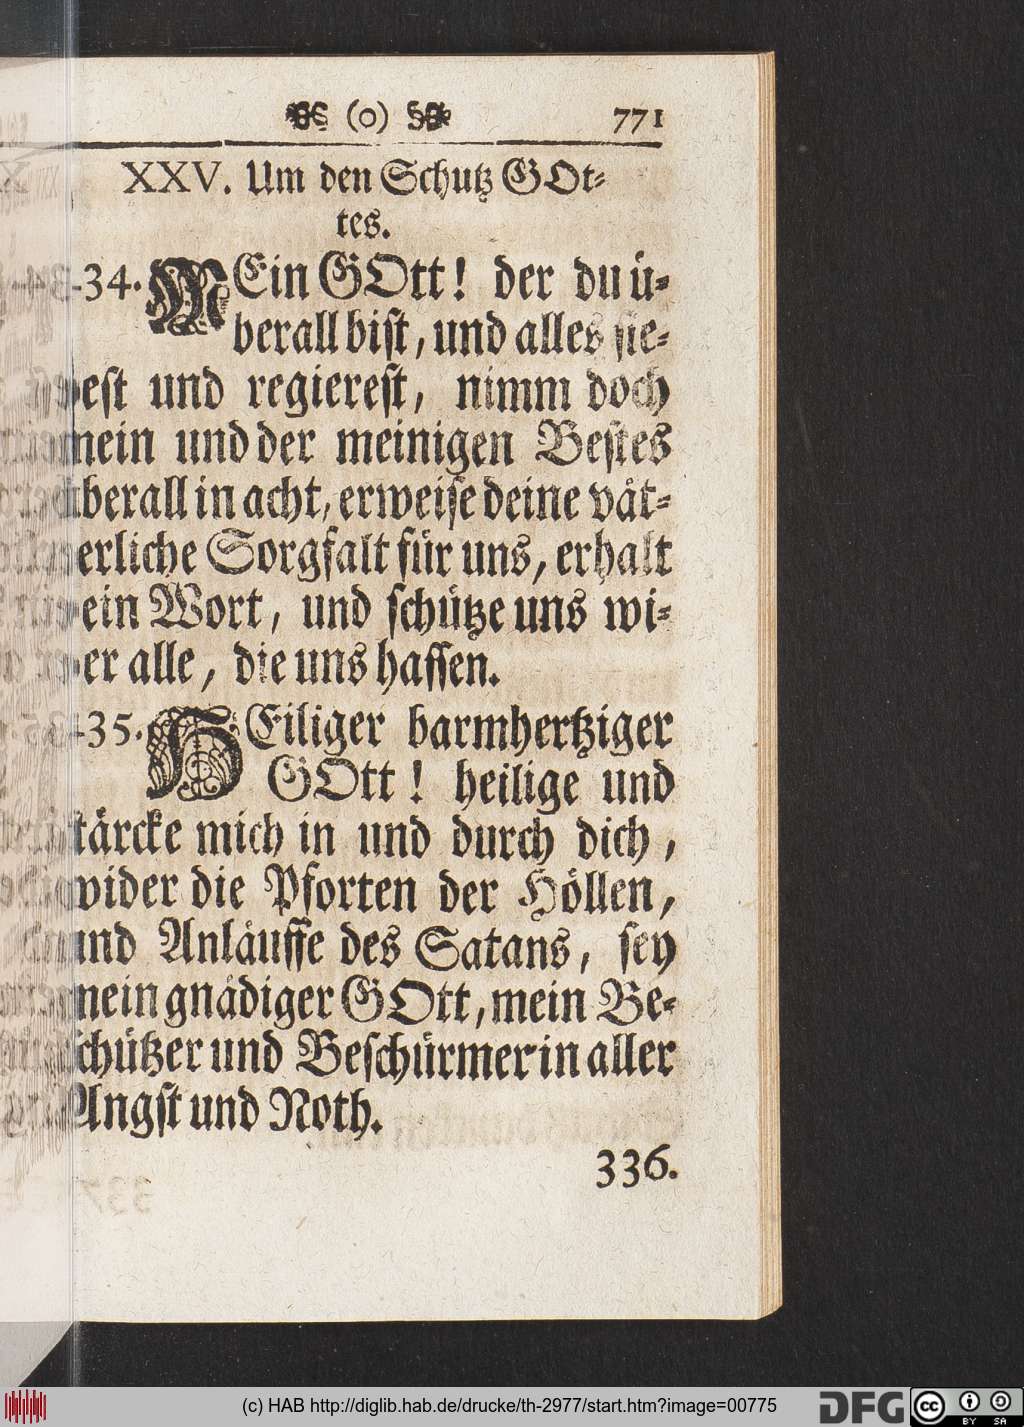 (o) 771
XXV. Um den Schutz GOt-
tes.
34. MEin GOtt! der du ü-
berall bist, und alles sie-
hest und regierest, nimm doch
mein und der meinigen Bestes
überall in acht, erweise deine vät-
terliche Sorgfalt für uns, erhalt
dein Wort, und schütze uns wi-
der alle, die uns hassen.
35. HEiliger barmhertziger
GOtt! heilige und
stärcke mich in und durch dich,
wider die Pforten der Höllen,
und Anläuffe des Satans, sey
mein gnädiger GOtt, mein Be-
schützer und Beschürmer in aller
Angst und Noth.
336.
(c) HAB http://diglib.hab.de/drucke/th-2977/start.htm?image=00775
DFG
cc BY SA